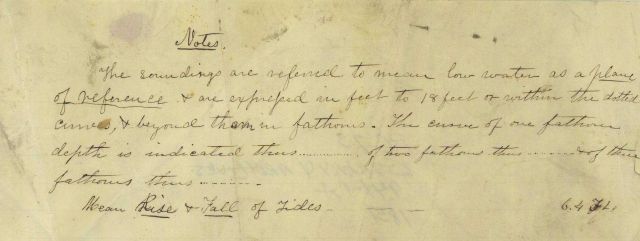 Notes.
The soundings are referred to mean low water as a plane
of reference & are expressed in feet to 18 feet or within the dotted
curves, & beyond them in fathoms. The curve of one fathom
depth is indicated thus .............. of two fathoms thus .. .. .. .. & of three
fathoms thus ... ... ...
Mean Rise & Fall of Tides 6.4 Ft.